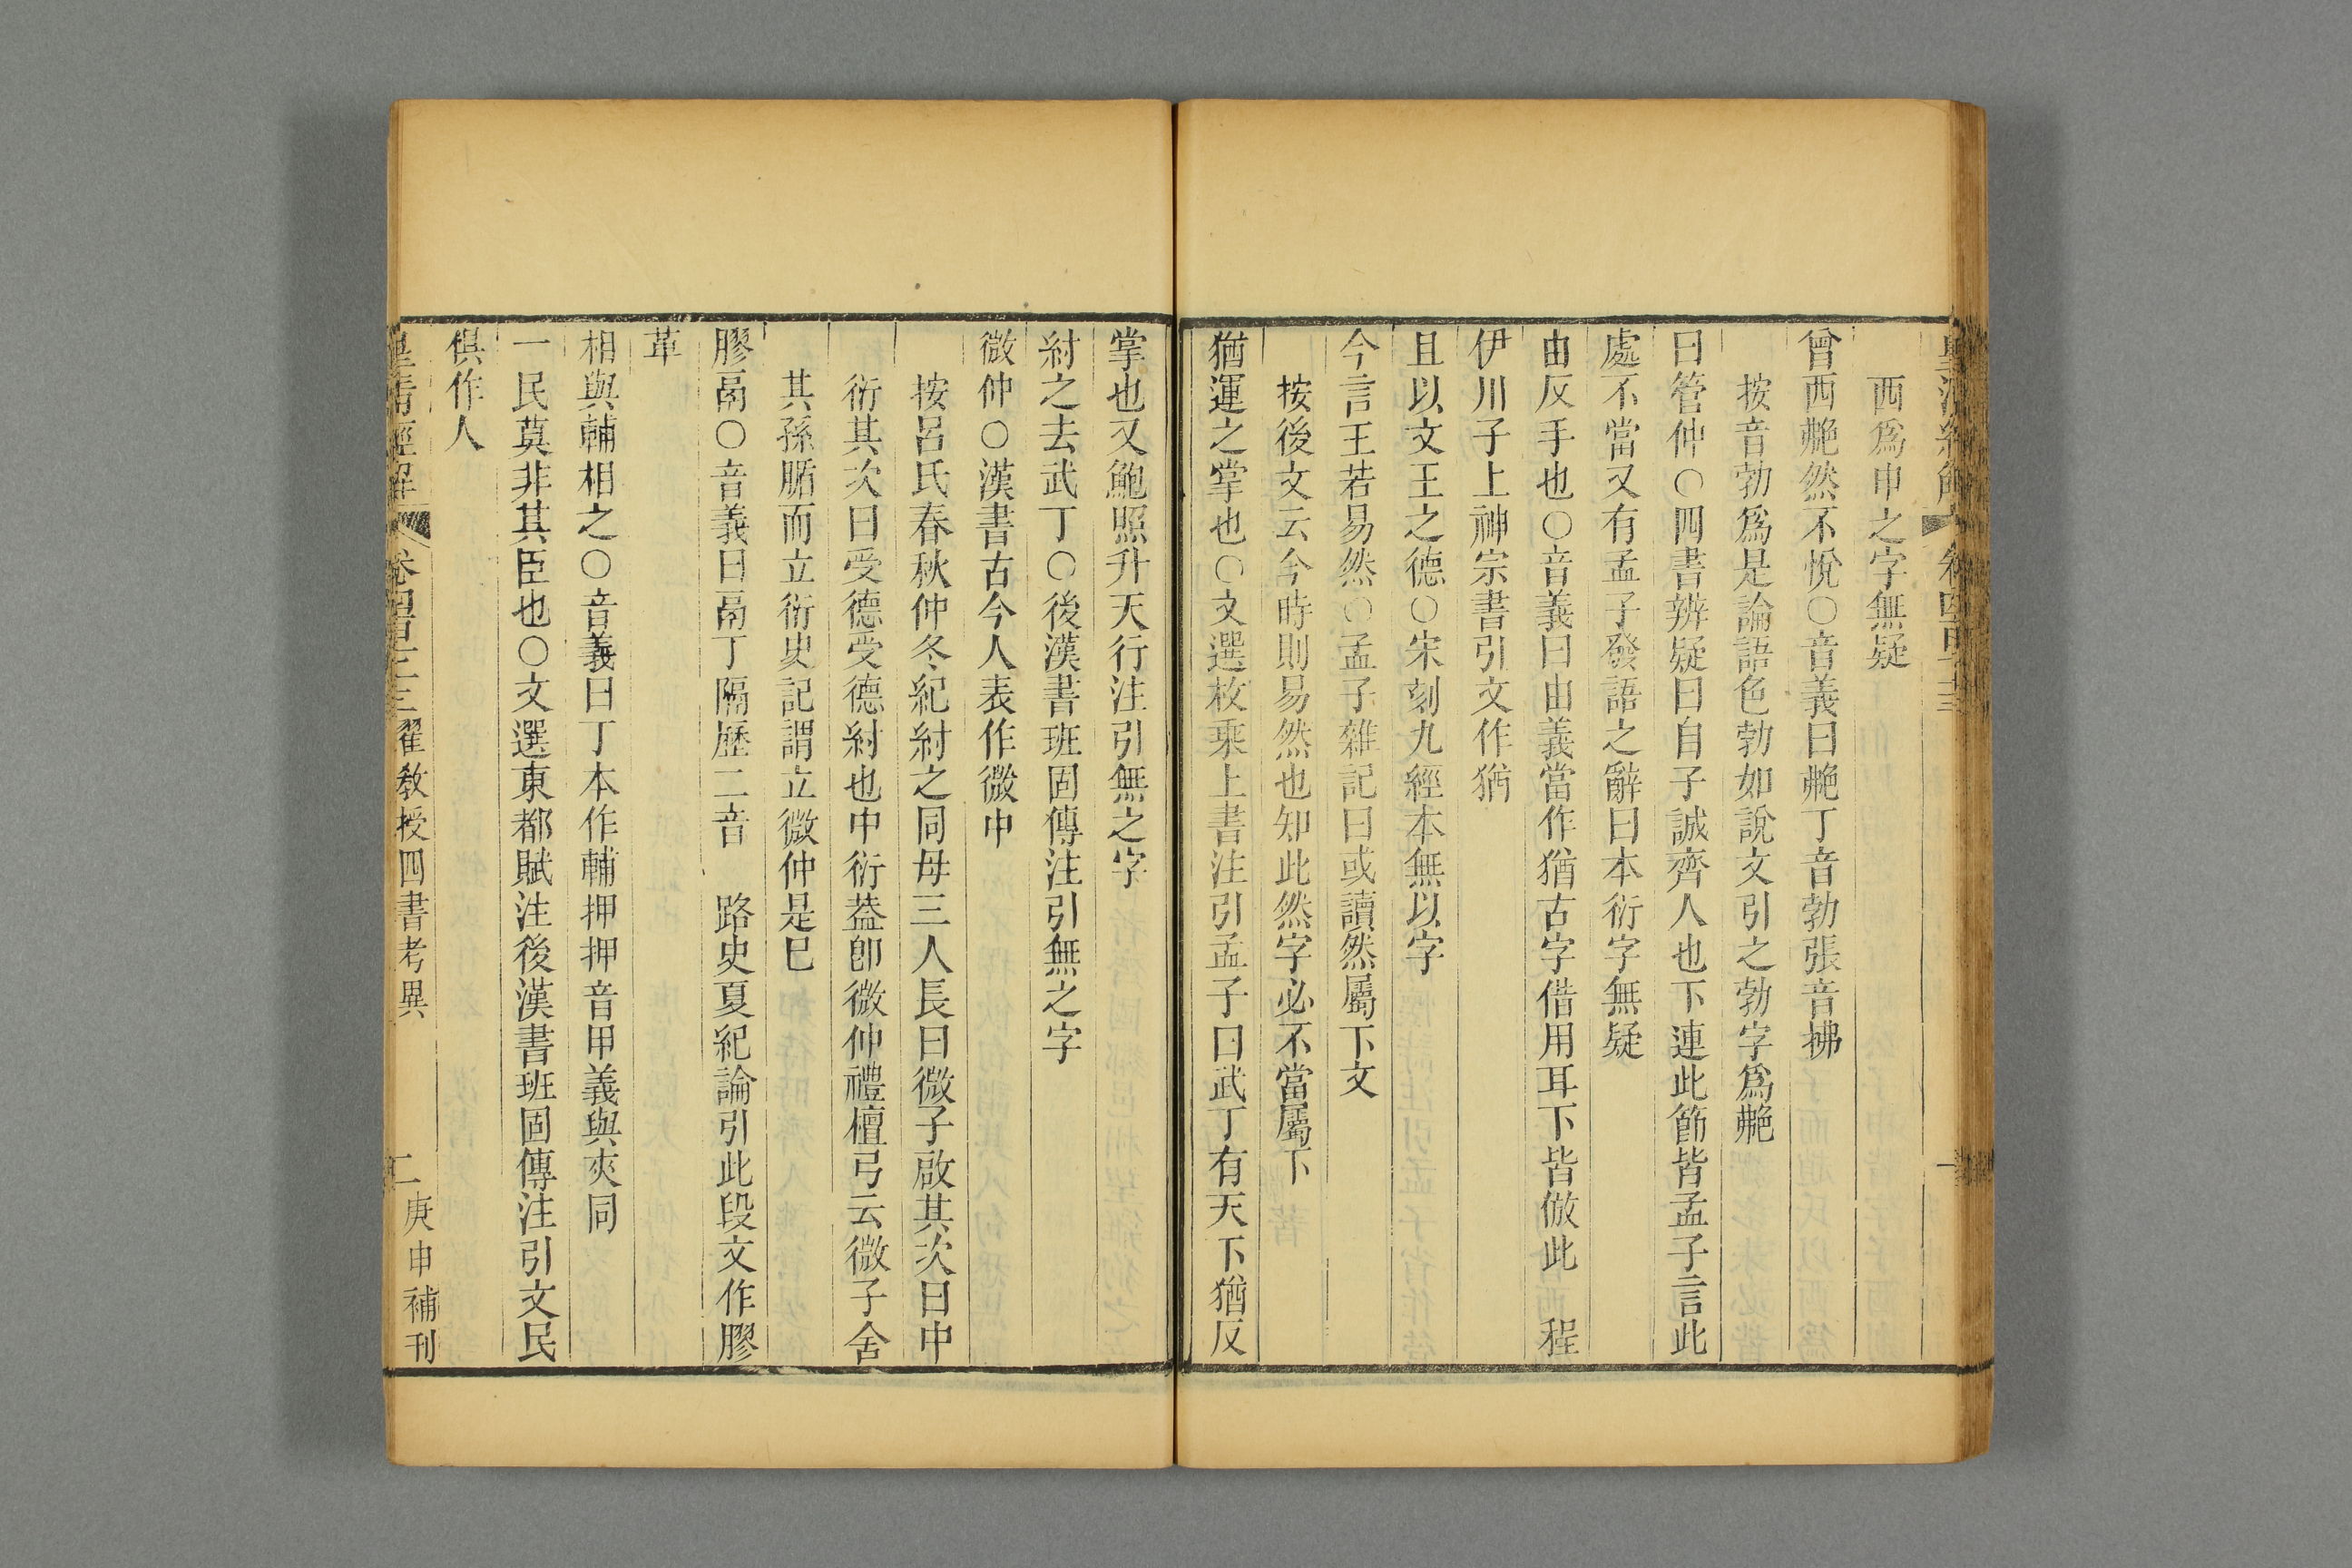 西爲申之字無疑
曾西艴然不悅○音義曰艴丁音勃張音拂
按音勃爲是論語色勃如說文引之勃字爲艴
曰管仲○四書辨疑曰自子誠齊人也下連此節皆孟子言此
處不當又有孟子發語之辭曰本衍字無疑
由反手也○音義曰由義當作猶古字借用耳下皆倣此　程
伊川子上神宗書引文作猶
且以文王之德○宋刻九經本無以字
今言王若易然○孟子雜記曰或讀然屬下文
按後文云今時則易然也知此然字必不當屬下
猶運之掌也○文選枚乘上書注引孟子曰武丁有天下猶反
掌也又鮑照升天行注引無之字
紂之去武丁○後漢書班固傳注引無之字
微仲○漢書古今人表作微中
按呂氏春秋仲冬紀紂之同母三人長曰微子啟其次曰中
衍其次曰受德受德紂也中衍蓋卽微仲禮檀弓云微子舍
其孫腯而立衍史記謂立微仲是巳
膠鬲○音義曰鬲丁隔歷二音　路史夏紀論引此段文作膠
革
相與輔相之○音義曰丁本作輔押押音甲義與夾同
一民莫非其臣也○文選東都賦注後漢書班固傳注引文民
俱作人
皇清經解　卷四百七十三　翟教授四書考異　二　庚申補刊